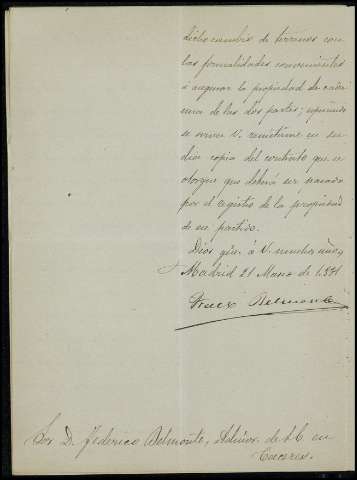 dicho cambio de terrenos con
las formalidades convenientes
á asegurar la propiedad de cada
una de las dos partes; esperando
se sirva V. remitirme en su
dia copia del contrato que se
otorgue que deberá ser pasado
por el registro de la propiedad
de su partido.
Dios gũe. á V. muchos años,
Madrid 21 Marzo de 1881
Belmonte
Sor D. Federico Belmonte, Admor. de en
Caceres.